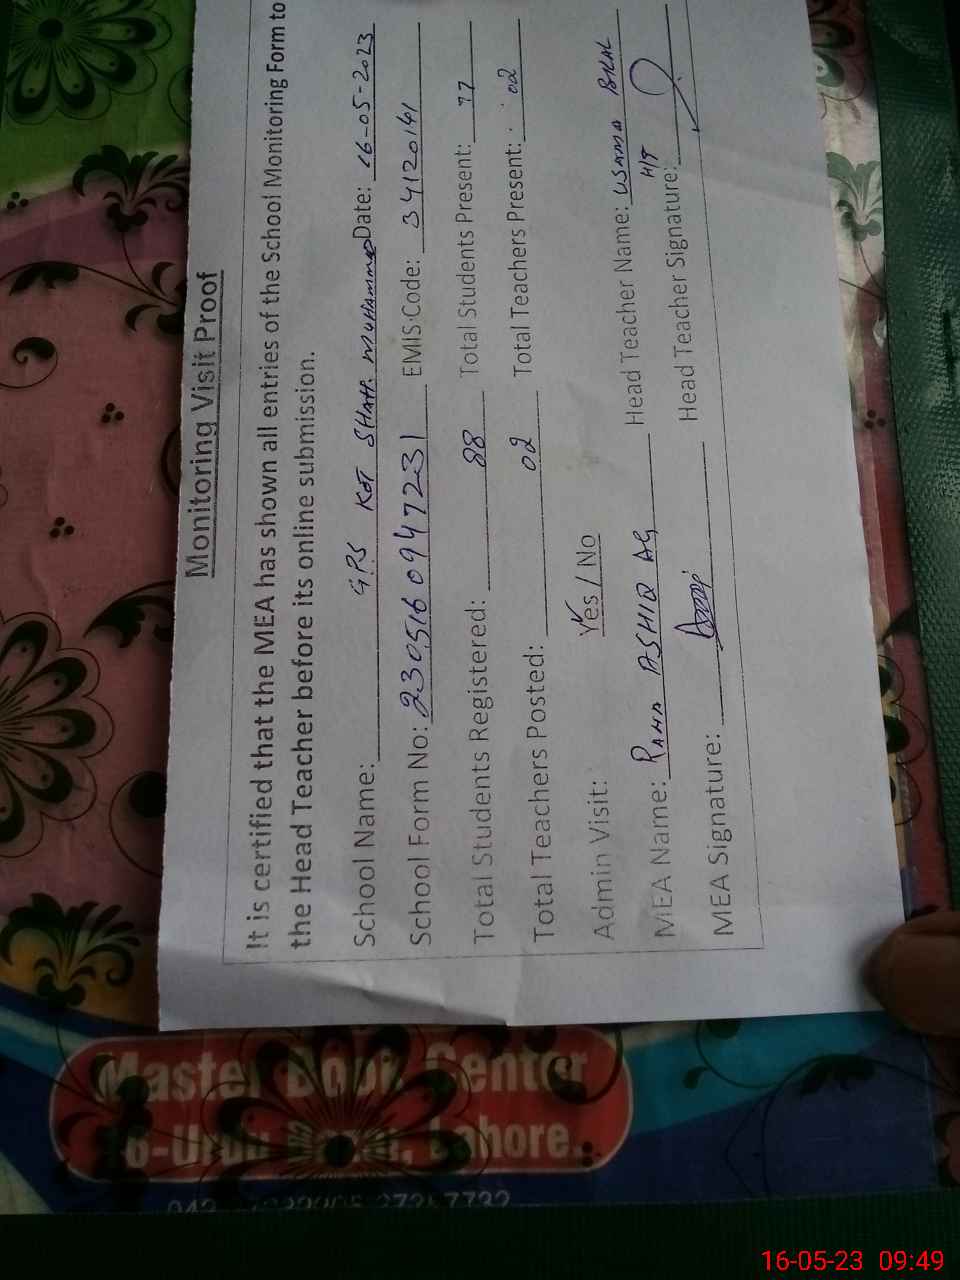 Monitoring Visit Proof
It is certified that the MEA has shown all entries of the School Monitoring Form to
the Head Teacher before its online submission.
School Name: GPS KOT SHAH MUHAMMAD Date: 16-05-2023
School Form No: 230516094723 EMIS Code: 34120141
Total Students Registered: 88 Total Students Present: 77
Total Teachers Posted: 02 Total Teachers Present: 02
Admin Visit: Yes / No
MEA Name: RANA ASHIQ AG Head Teacher Name: USAMA BILAL
H/T
MEA Signature: Head Teacher Signature:
Master Book Center
Lahore.
16-05-23 09:49